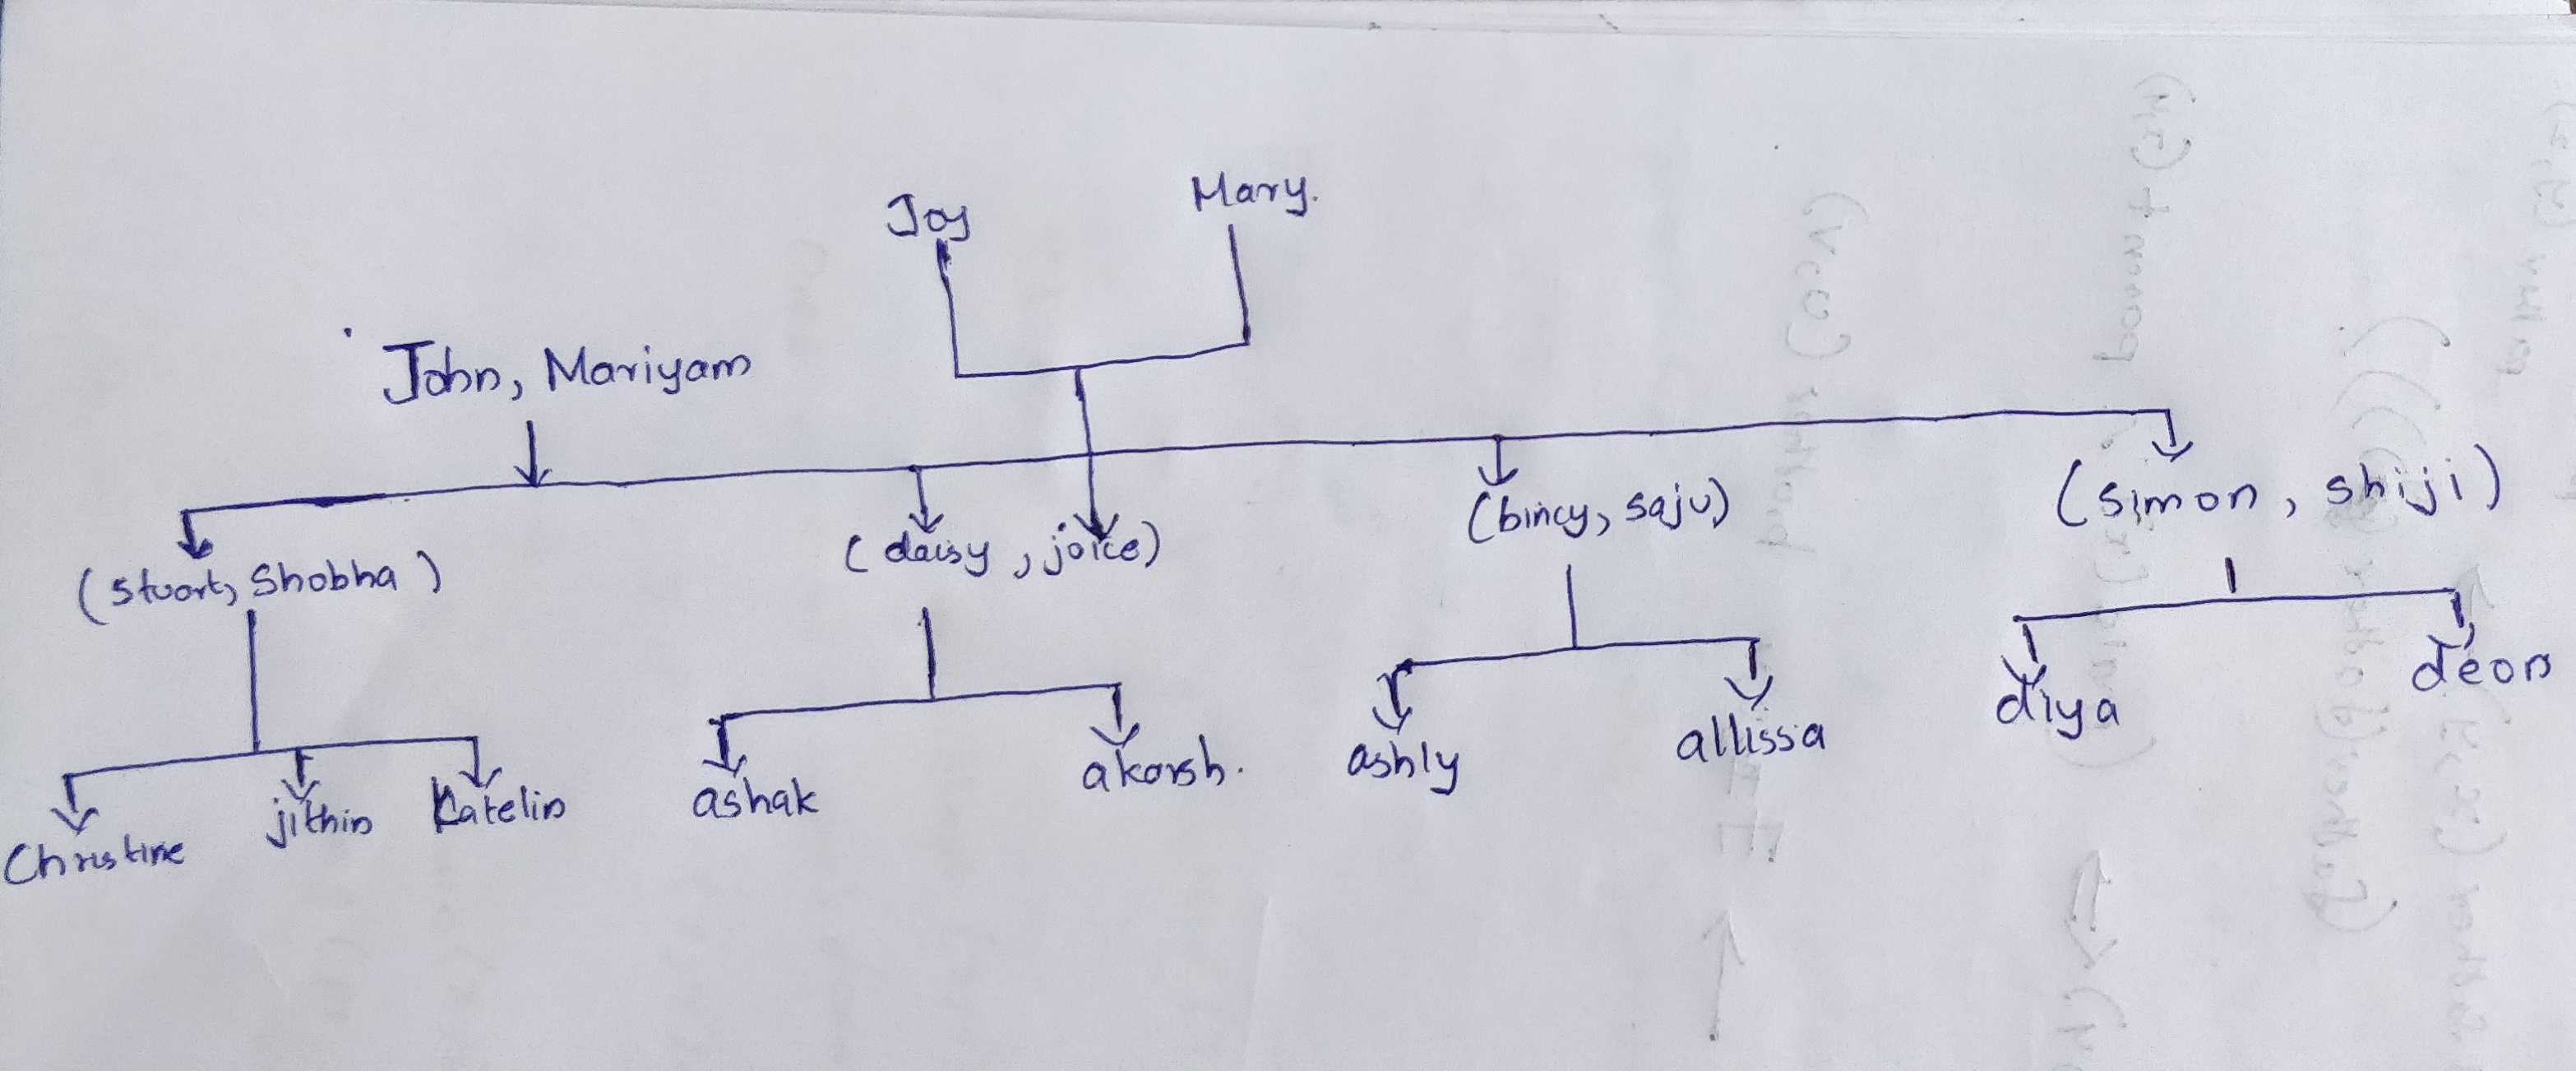 Joy Mary.
John, Mariyam
(stuart, Shobha) (daisy, joice) (bincy, saju) (simon, shiji)
Christine jithin Katelin ashak akarsh. ashly allissa diya deon